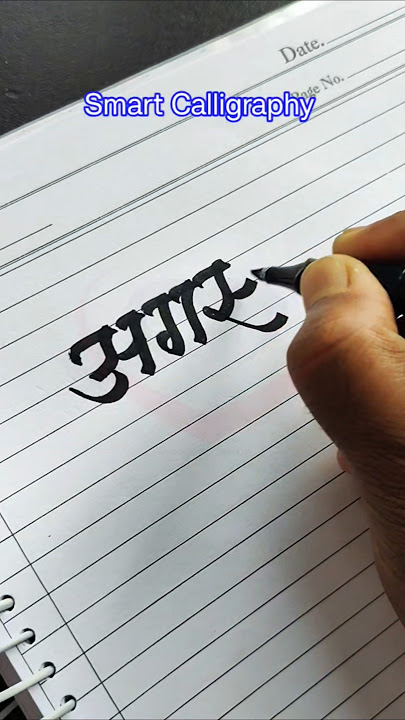 Date.
Page No.
Smart Calligraphy
अगर